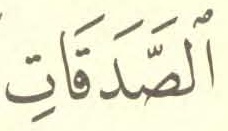 ٱلصَّدَقَاتِ